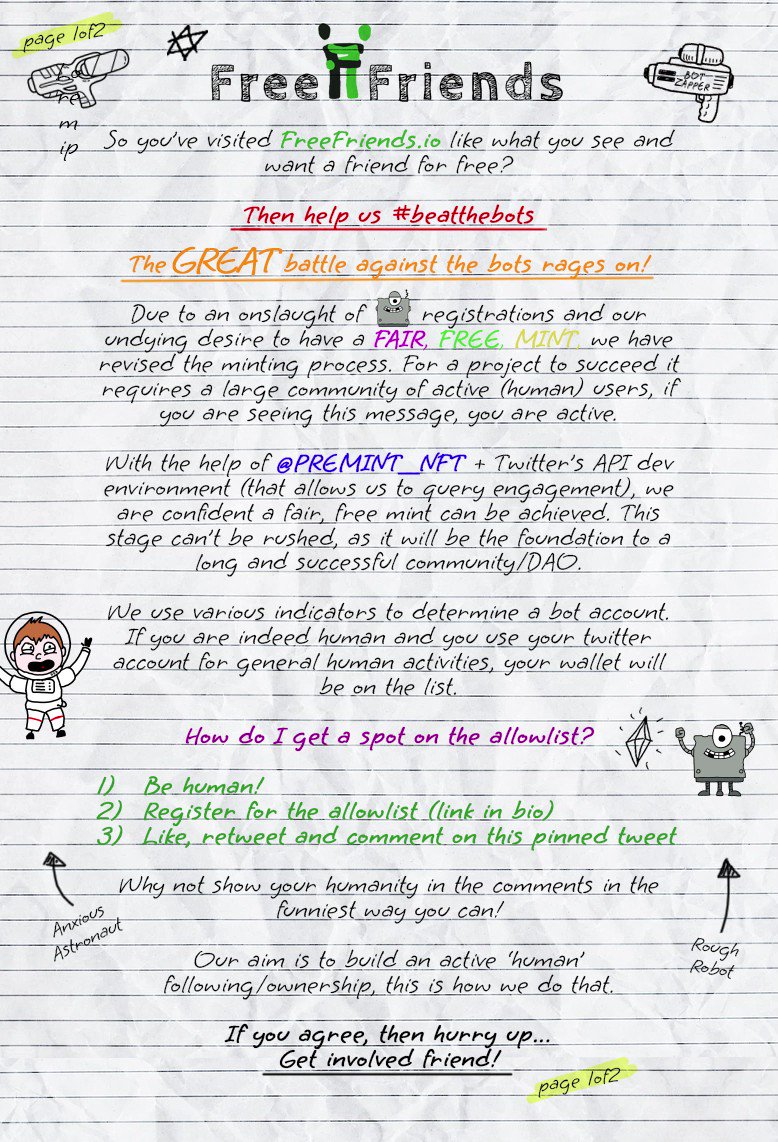 page 1of2
Free Friends
BOT
ZAPPER
re
m
ip
So you've visited FreeFriends.io like what you see and
want a friend for free?
Then help us #beatthebots
The GREAT battle against the bots rages on!
Due to an onslaught of registrations and our
undying desire to have a FAIR, FREE, MINT, we have
revised the minting process. For a project to succeed it
requires a large community of active (human) users, if
you are seeing this message, you are active.
With the help of @PREMINT_NFT + Twitter's API dev
environment (that allows us to query engagement), we
are confident a fair, free mint can be achieved. This
stage can't be rushed, as it will be the foundation to a
long and successful community/DAO.
We use various indicators to determine a bot account.
If you are indeed human and you use your twitter
account for general human activities, your wallet will
be on the list.
How do I get a spot on the allowlist?
1) Be human!
2) Register for the allowlist (link in bio)
3) Like, retweet and comment on this pinned tweet
Why not show your humanity in the comments in the
funniest way you can!
Anxious
Astronaut
Rough
Robot
Our aim is to build an active 'human'
following/ownership, this is how we do that.
If you agree, then hurry up...
Get involved friend!
page 1of2